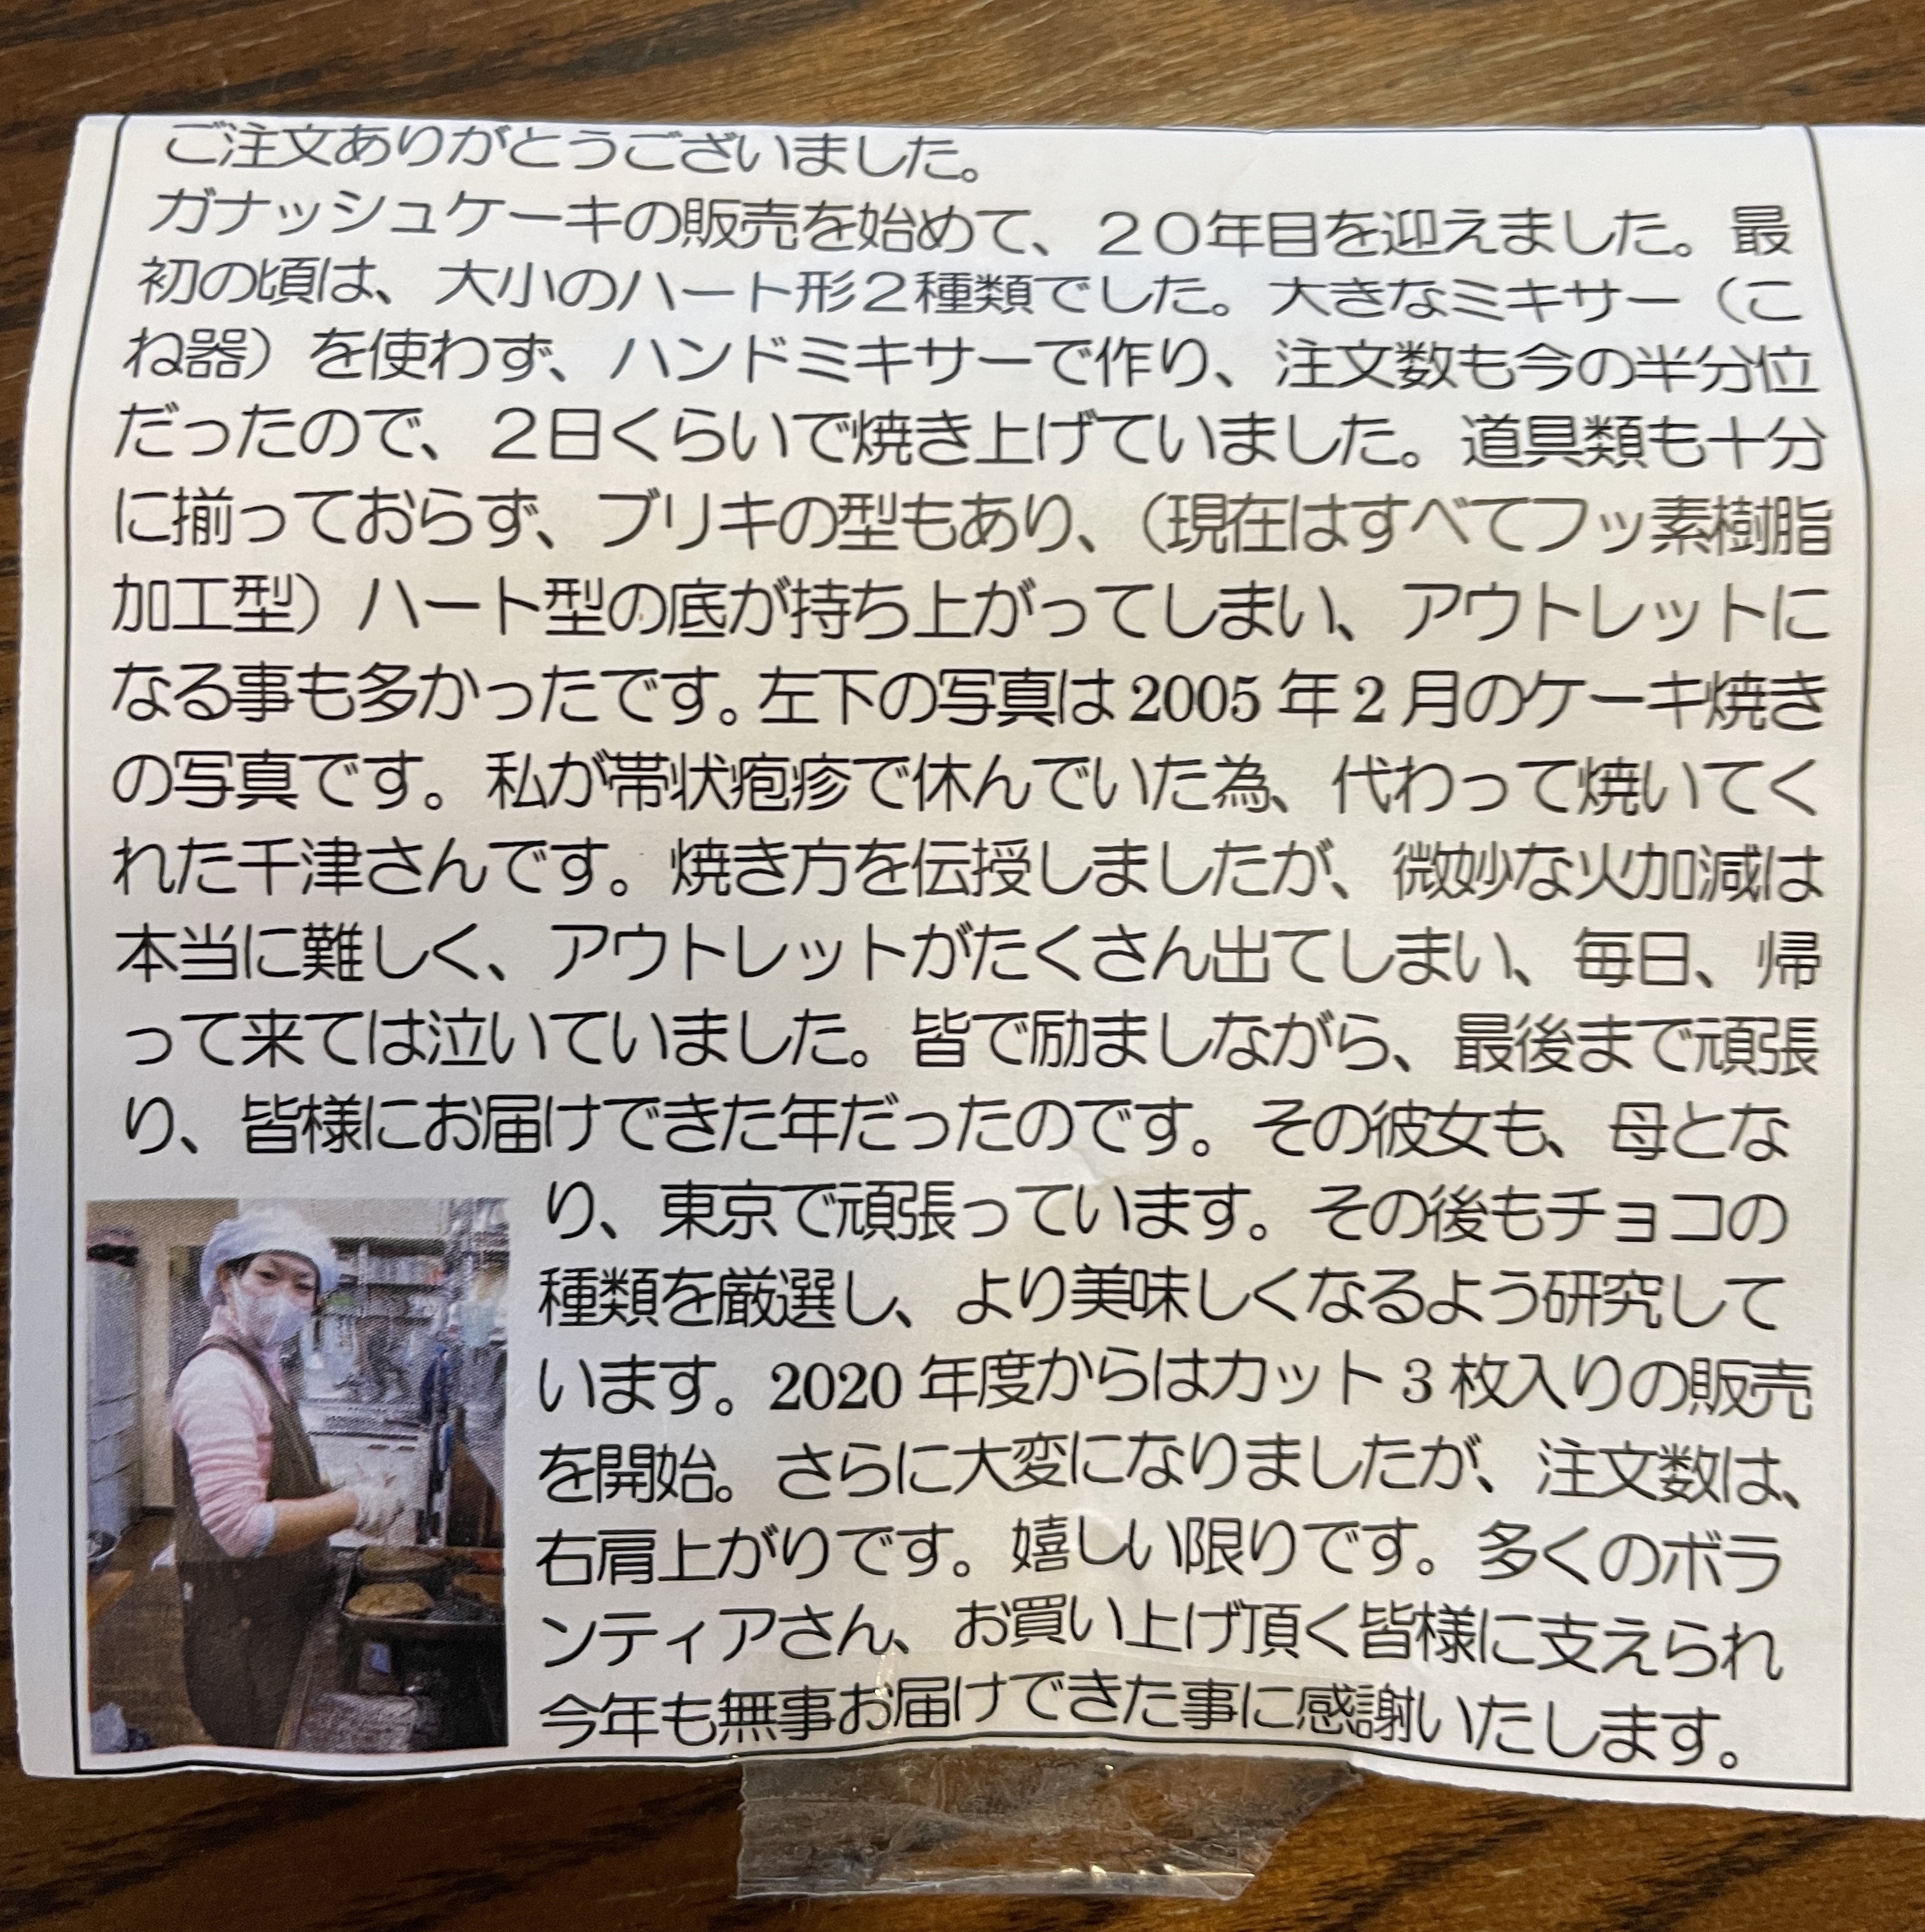 ご注文ありがとうございました。
ガナッシュケーキの販売を始めて、２０年目を迎えました。最
初の頃は、大小のハート形２種類でした。大きなミキサー（こ
ね器）を使わず、ハンドミキサーで作り、注文数も今の半分位
だったので、２日くらいで焼き上げていました。道具類も十分
に揃っておらず、ブリキの型もあり、（現在はすべてフッ素樹脂
加工型）ハート型の底が持ち上がってしまい、アウトレットに
なる事も多かったです。左下の写真は 2005 年 2 月のケーキ焼き
の写真です。私が帯状疱疹で休んでいた為、代わって焼いてく
れた千津さんです。焼き方を伝授しましたが、微妙な火加減は
本当に難しく、アウトレットがたくさん出てしまい、毎日、帰
って来ては泣いていました。皆で励ましながら、最後まで頑張
り、皆様にお届けできた年だったのです。その彼女も、母とな
り、東京で頑張っています。その後もチョコの
種類を厳選し、より美味しくなるよう研究して
います。2020 年度からはカット 3 枚入りの販売
を開始。さらに大変になりましたが、注文数は、
右肩上がりです。嬉しい限りです。多くのボラ
ンティアさん、お買い上げ頂く皆様に支えられ
今年も無事お届けできた事に感謝いたします。